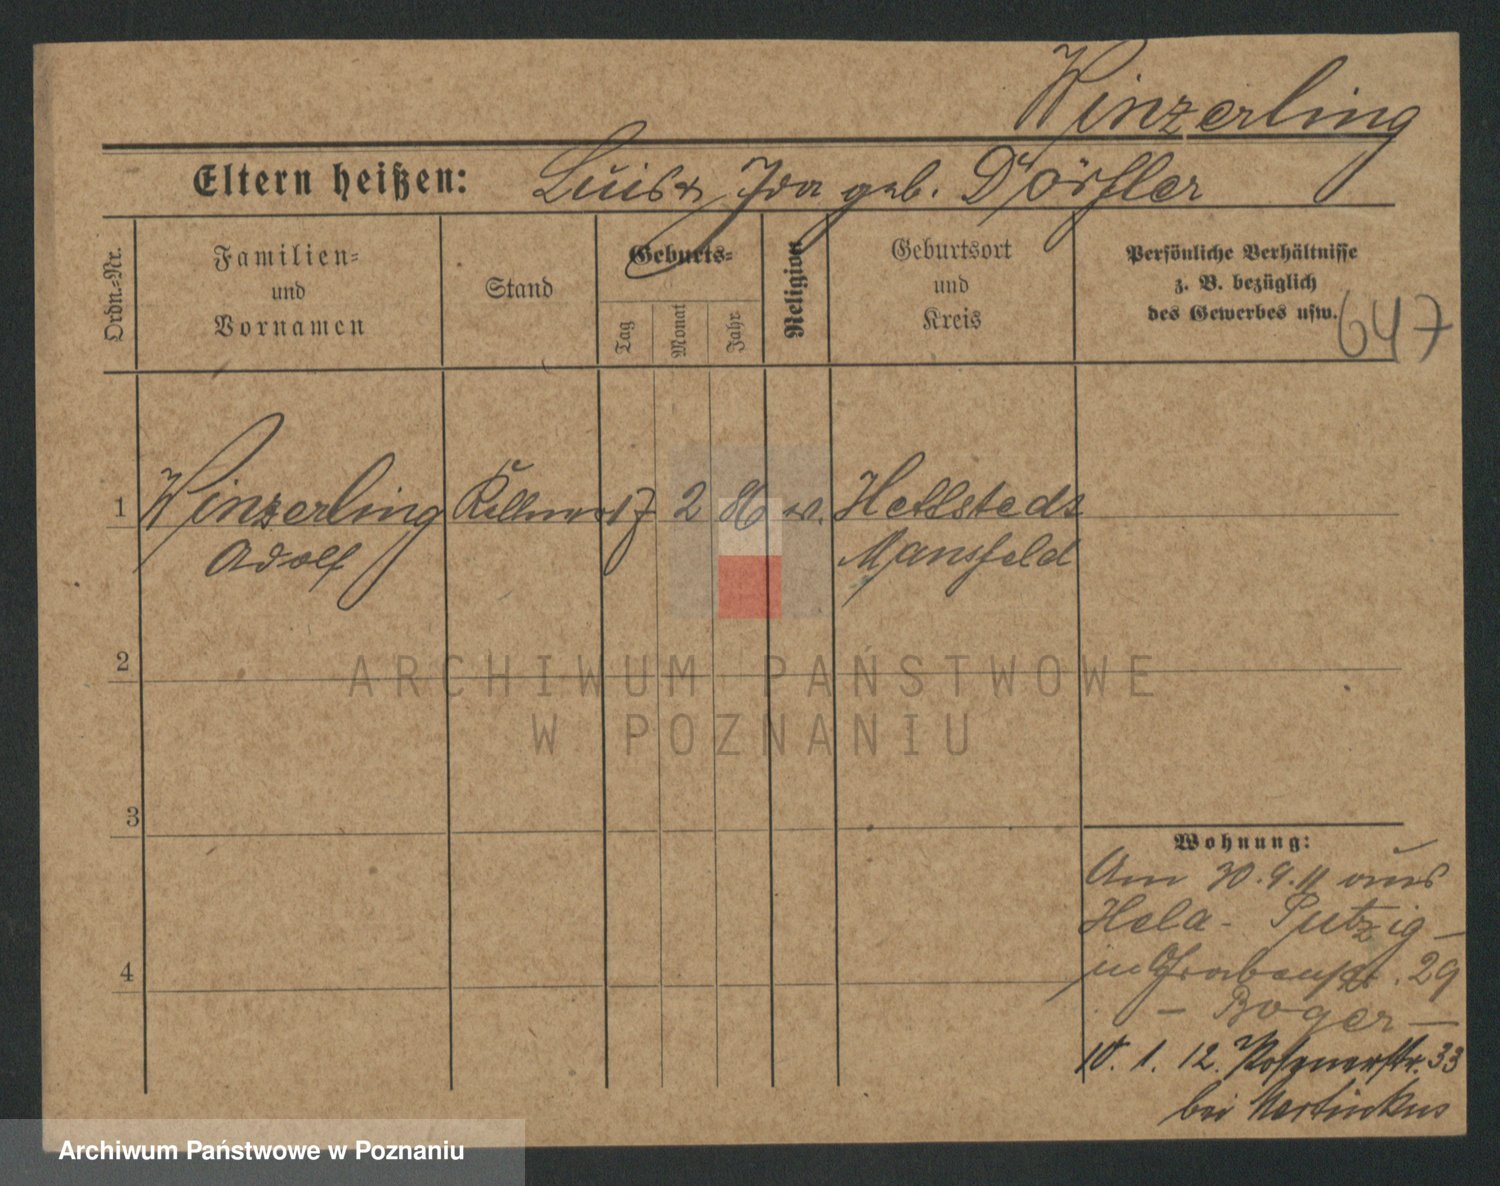 Winzerling
Eltern heißen: Luis u. Ida geb. Dörfler
Ordn.-Nr.
Familien-
und
Vornamen
Stand
Geburts-
Tag
Monat
Jahr
Religion
Geburtsort
und
Kreis
Persönliche Verhältnisse
z. B. bezüglich
des Gewerbes usw.
647
1 Winzerling Kellner 17 2 86 ev. Hettstedt
Adolf Mansfeld
2
ARCHIWUM PAŃSTWOWE
W POZNANIU
3
Wohnung:
Am 30.9.11 aus
Hela - Putzig -
in Grabenstr. 29
- Boger -
10. 1. 12. Posenerstr. 33
bei Martinkus
4
Archiwum Państwowe w Poznaniu